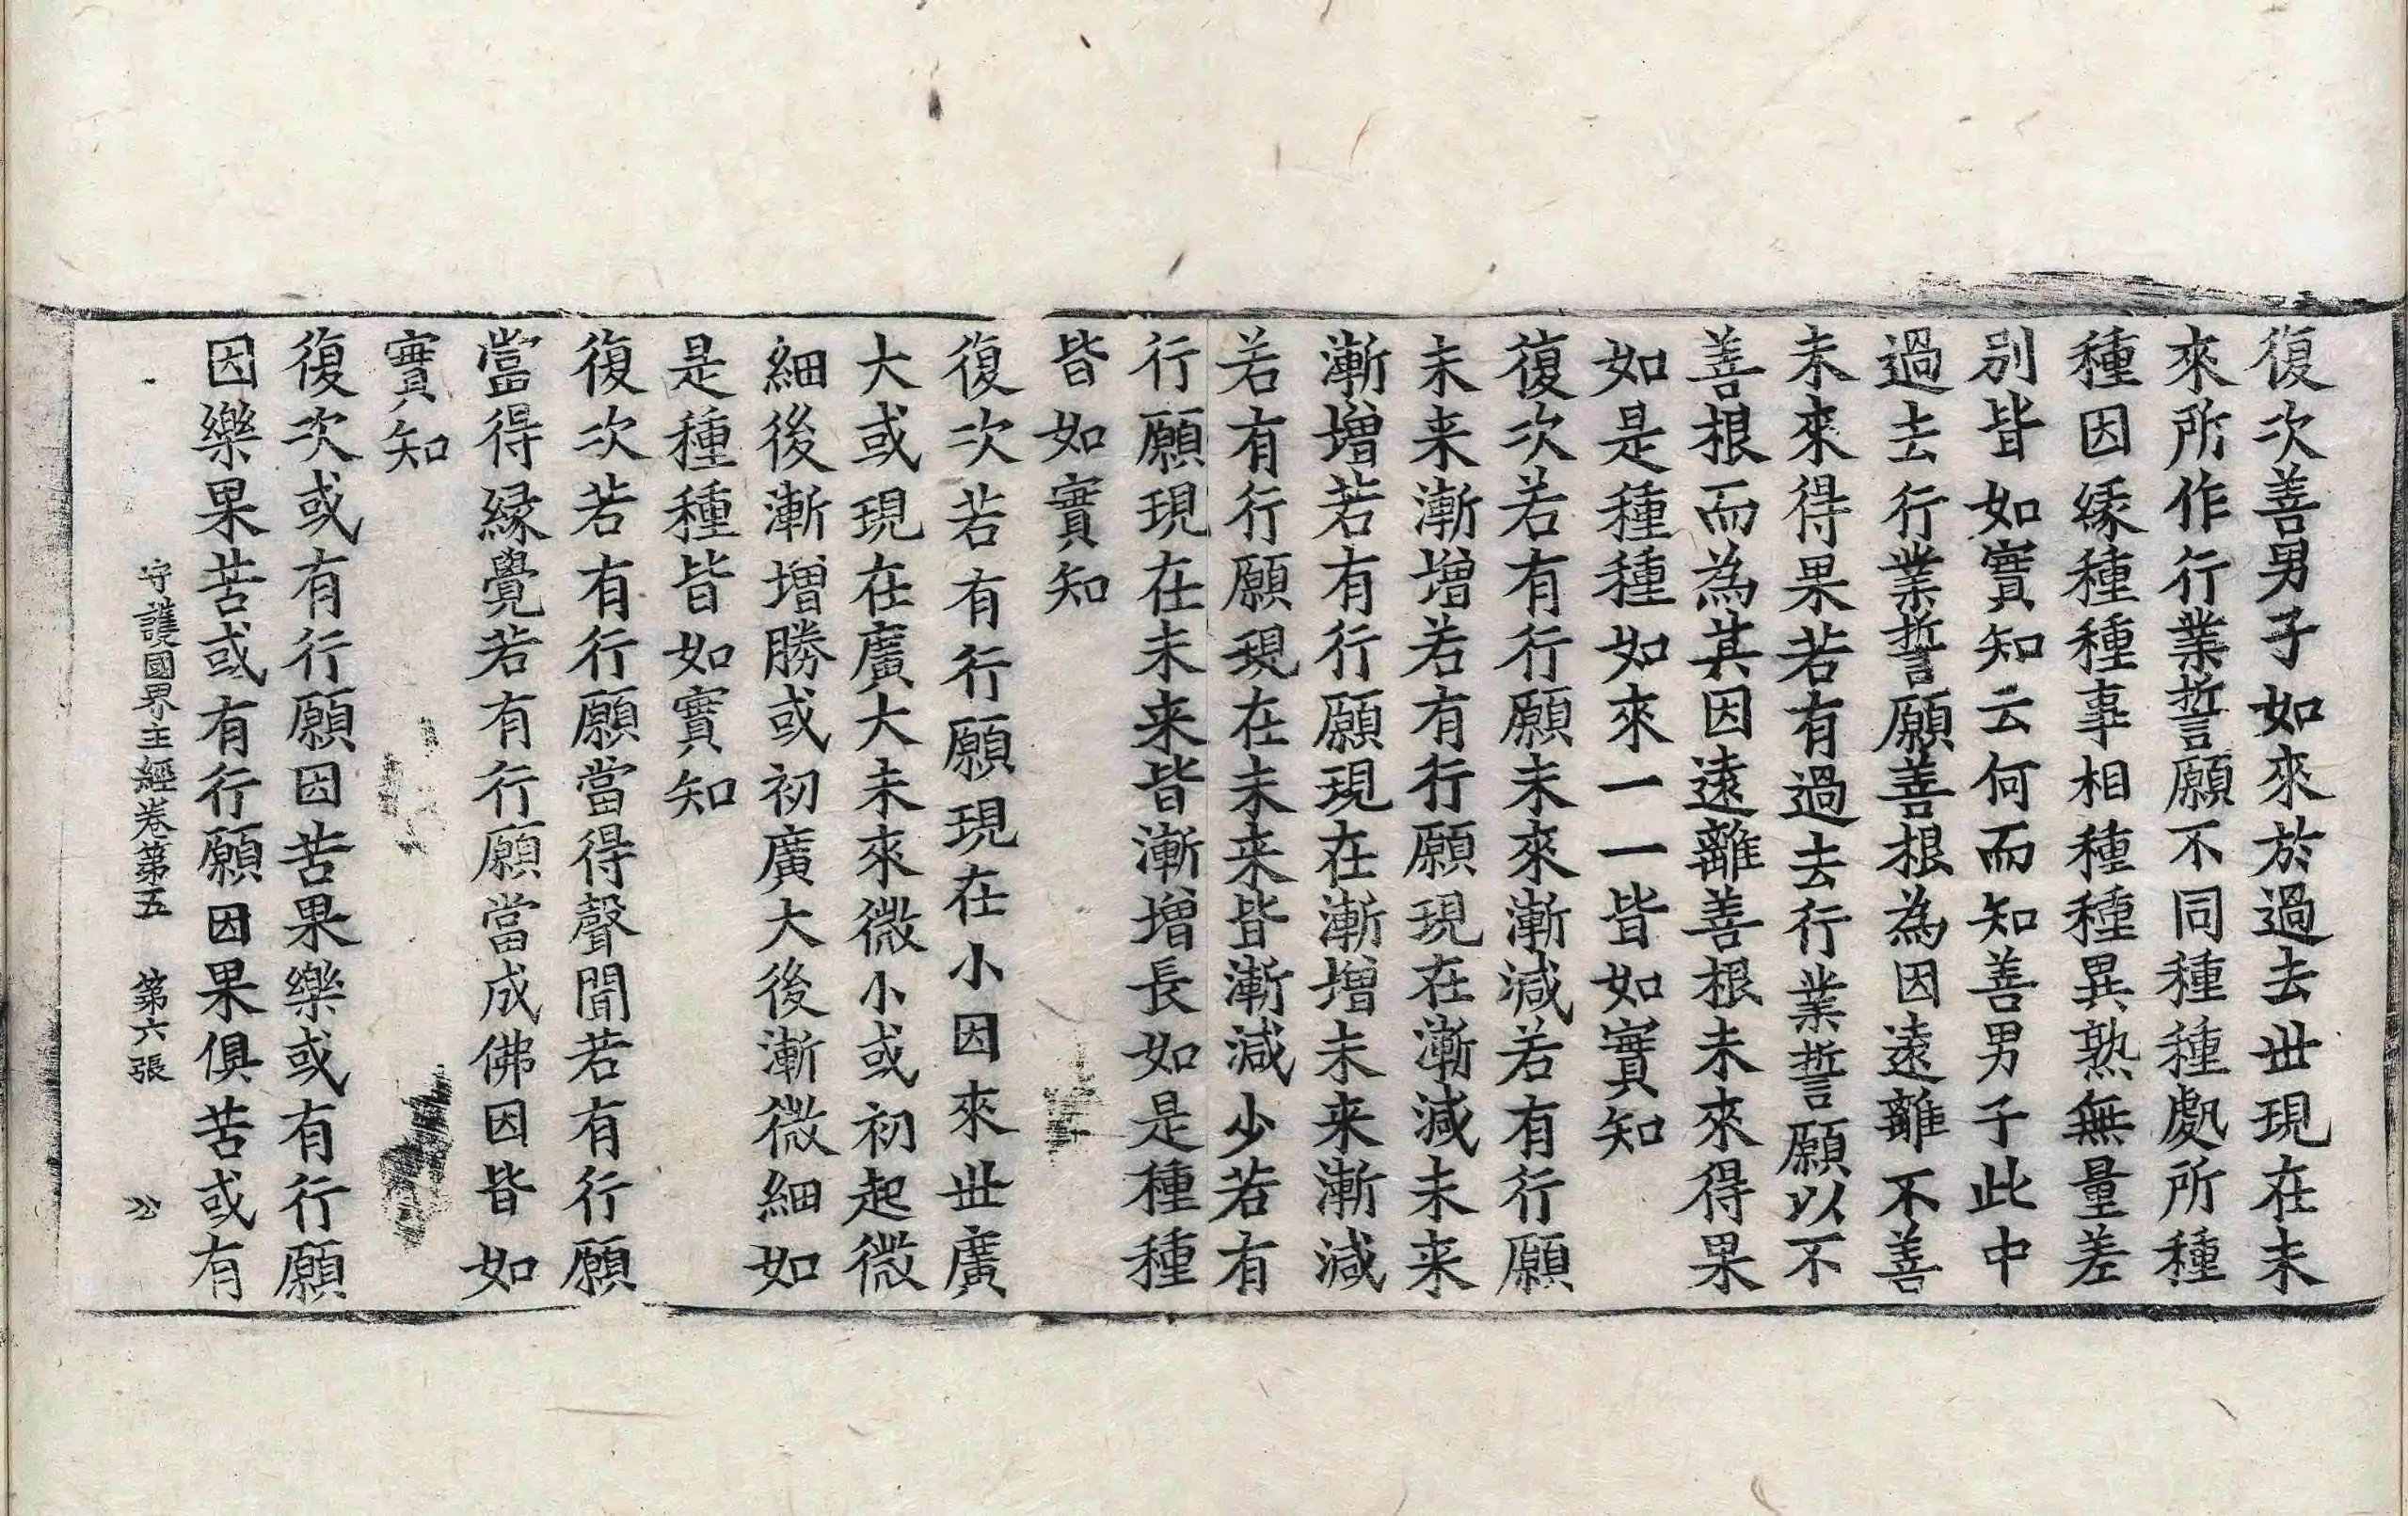 復次善男子如來於過去世現在未
來所作行業誓願不同種種處所種
種因緣種種事相種種異熟無量差
別皆如實知云何而知善男子此中
過去行業誓願善根為因遠離不善
未來得果若有過去行業誓願以不
善根而為其因遠離善根未來得果
如是種種如來一一皆如實知
復次若有行願未來漸減若有行願
未来漸增若有行願現在漸減未来
漸增若有行願現在漸增未来漸減
若有行願現在未来皆漸減少若有
行願現在未来皆漸增長如是種種
皆如實知
復次若有行願現在小因來世廣
大或現在廣大未來微小或初起微
細後漸增勝或初廣大後漸微細如
是種種皆如實知
復次若有行願當得聲聞若有行願
當得緣覺若有行願當成佛因皆如
實知
復次或有行願因苦果樂或有行願
因樂果苦或有行願因果俱苦或有
守護國界主經卷第五 第六張